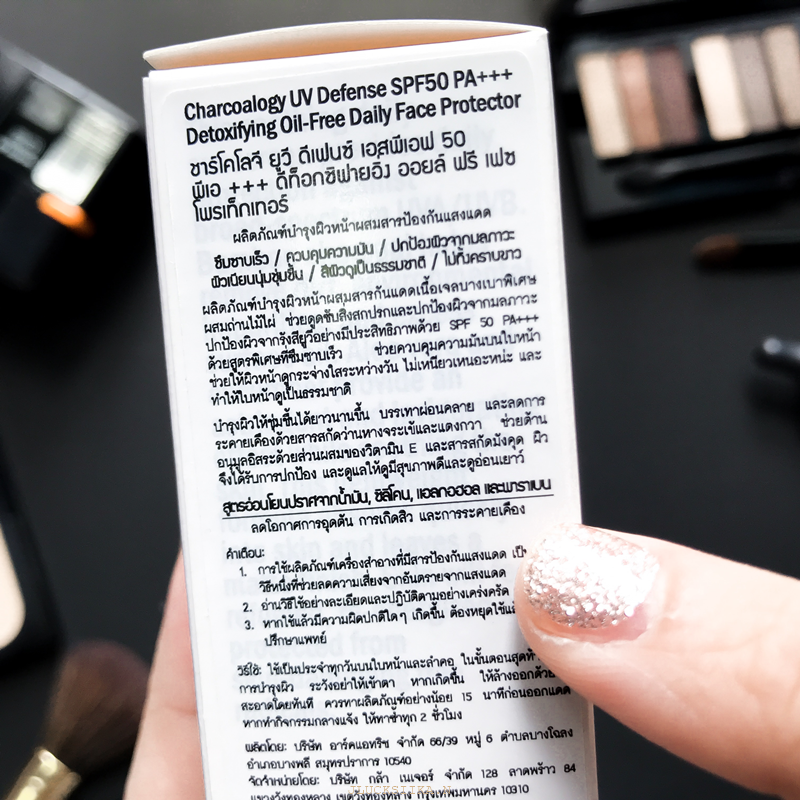 Charcoalogy UV Defense SPF50 PA+++
Detoxifying Oil-Free Daily Face Protector
ชาร์โคโลจี ยูวี ดีเฟนซ์ เอสพีเอฟ 50
พีเอ +++ ดีท็อกซิฟายอิ้ง ออยล์ ฟรี เฟซ
โพรเท็กเทอร์
ผลิตภัณฑ์บำรุงผิวหน้าผสมสารป้องกันแสงแดด
ซึมซาบเร็ว / ควบคุมความมัน / ปกป้องผิวจากมลภาวะ
ผิวเนียนนุ่มชุ่มชื้น / สีผิวดูเป็นธรรมชาติ / ไม่ทิ้งคราบขาว
ผลิตภัณฑ์บำรุงผิวหน้าผสมสารกันแดดเนื้อเจลบางเบาพิเศษ
ผสมถ่านไม้ไผ่ ช่วยดูดซับสิ่งสกปรกและปกป้องผิวจากมลภาวะ
ปกป้องผิวจากรังสียูวีอย่างมีประสิทธิภาพด้วย SPF 50 PA+++
ด้วยสูตรพิเศษที่ซึมซาบเร็ว ช่วยควบคุมความมันบนใบหน้า
ช่วยให้ผิวหน้าดูกระจ่างใสระหว่างวัน ไม่เหนียวเหนอะหนะ และ
ทำให้ใบหน้าดูเป็นธรรมชาติ
บำรุงผิวให้ชุ่มชื้นได้ยาวนานขึ้น บรรเทาผ่อนคลาย และลดการ
ระคายเคืองด้วยสารสกัดว่านหางจระเข้และแตงกวา ช่วยต้าน
อนุมูลอิสระด้วยส่วนผสมของวิตามิน E และสารสกัดมังคุด ผิว
จึงได้รับการปกป้อง และดูแลให้ดูมีสุขภาพดีและดูอ่อนเยาว์
สูตรอ่อนโยนปราศจากน้ำมัน, ซิลิโคน, แอลกอฮอล และพาราเบน
ลดโอกาศการอุดตัน การเกิดสิว และการระคายเคือง
คำเตือน:
1. การใช้ผลิตภัณฑ์เครื่องสำอางที่มีสารป้องกันแสงแดด เป็น
วิธีหนึ่งที่ช่วยลดความเสี่ยงจากอันตรายจากแสงแดด
2. อ่านวิธีใช้อย่างละเอียดและปฏิบัติตามอย่างเคร่งครัด
3. หากใช้แล้วมีความผิดปกติใดๆ เกิดขึ้น ต้องหยุดใช้
ปรึกษาแพทย์
วิธีใช้: ใช้เป็นประจำทุกวันบนใบหน้าและลำคอ ในขั้นตอนสุด
การบำรุงผิว ระวังอย่าให้เข้าตา หากเกิดขึ้น ให้ล้างออกด้วย
สะอาดโดยทันที ควรทาผลิตภัณฑ์อย่างน้อย 15 นาทีก่อนออกแดด
หากทำกิจกรรมกลางแจ้ง ให้ทาซ้ำทุก 2 ชั่วโมง
ผลิตโดย: บริษัท อาร์คแอทริซ จำกัด 66/39 หมู่ 6 ตำบลบางโฉลง
อำเภอบางพลี สมุทรปราการ 10540
จัดจำหน่ายโดย: บริษัท กล้า เนเจอร์ จำกัด 128 ลาดพร้าว 84
แขวงวังทองหลาง เขตวังทองหลาง กรุงเทพมหานคร 10310